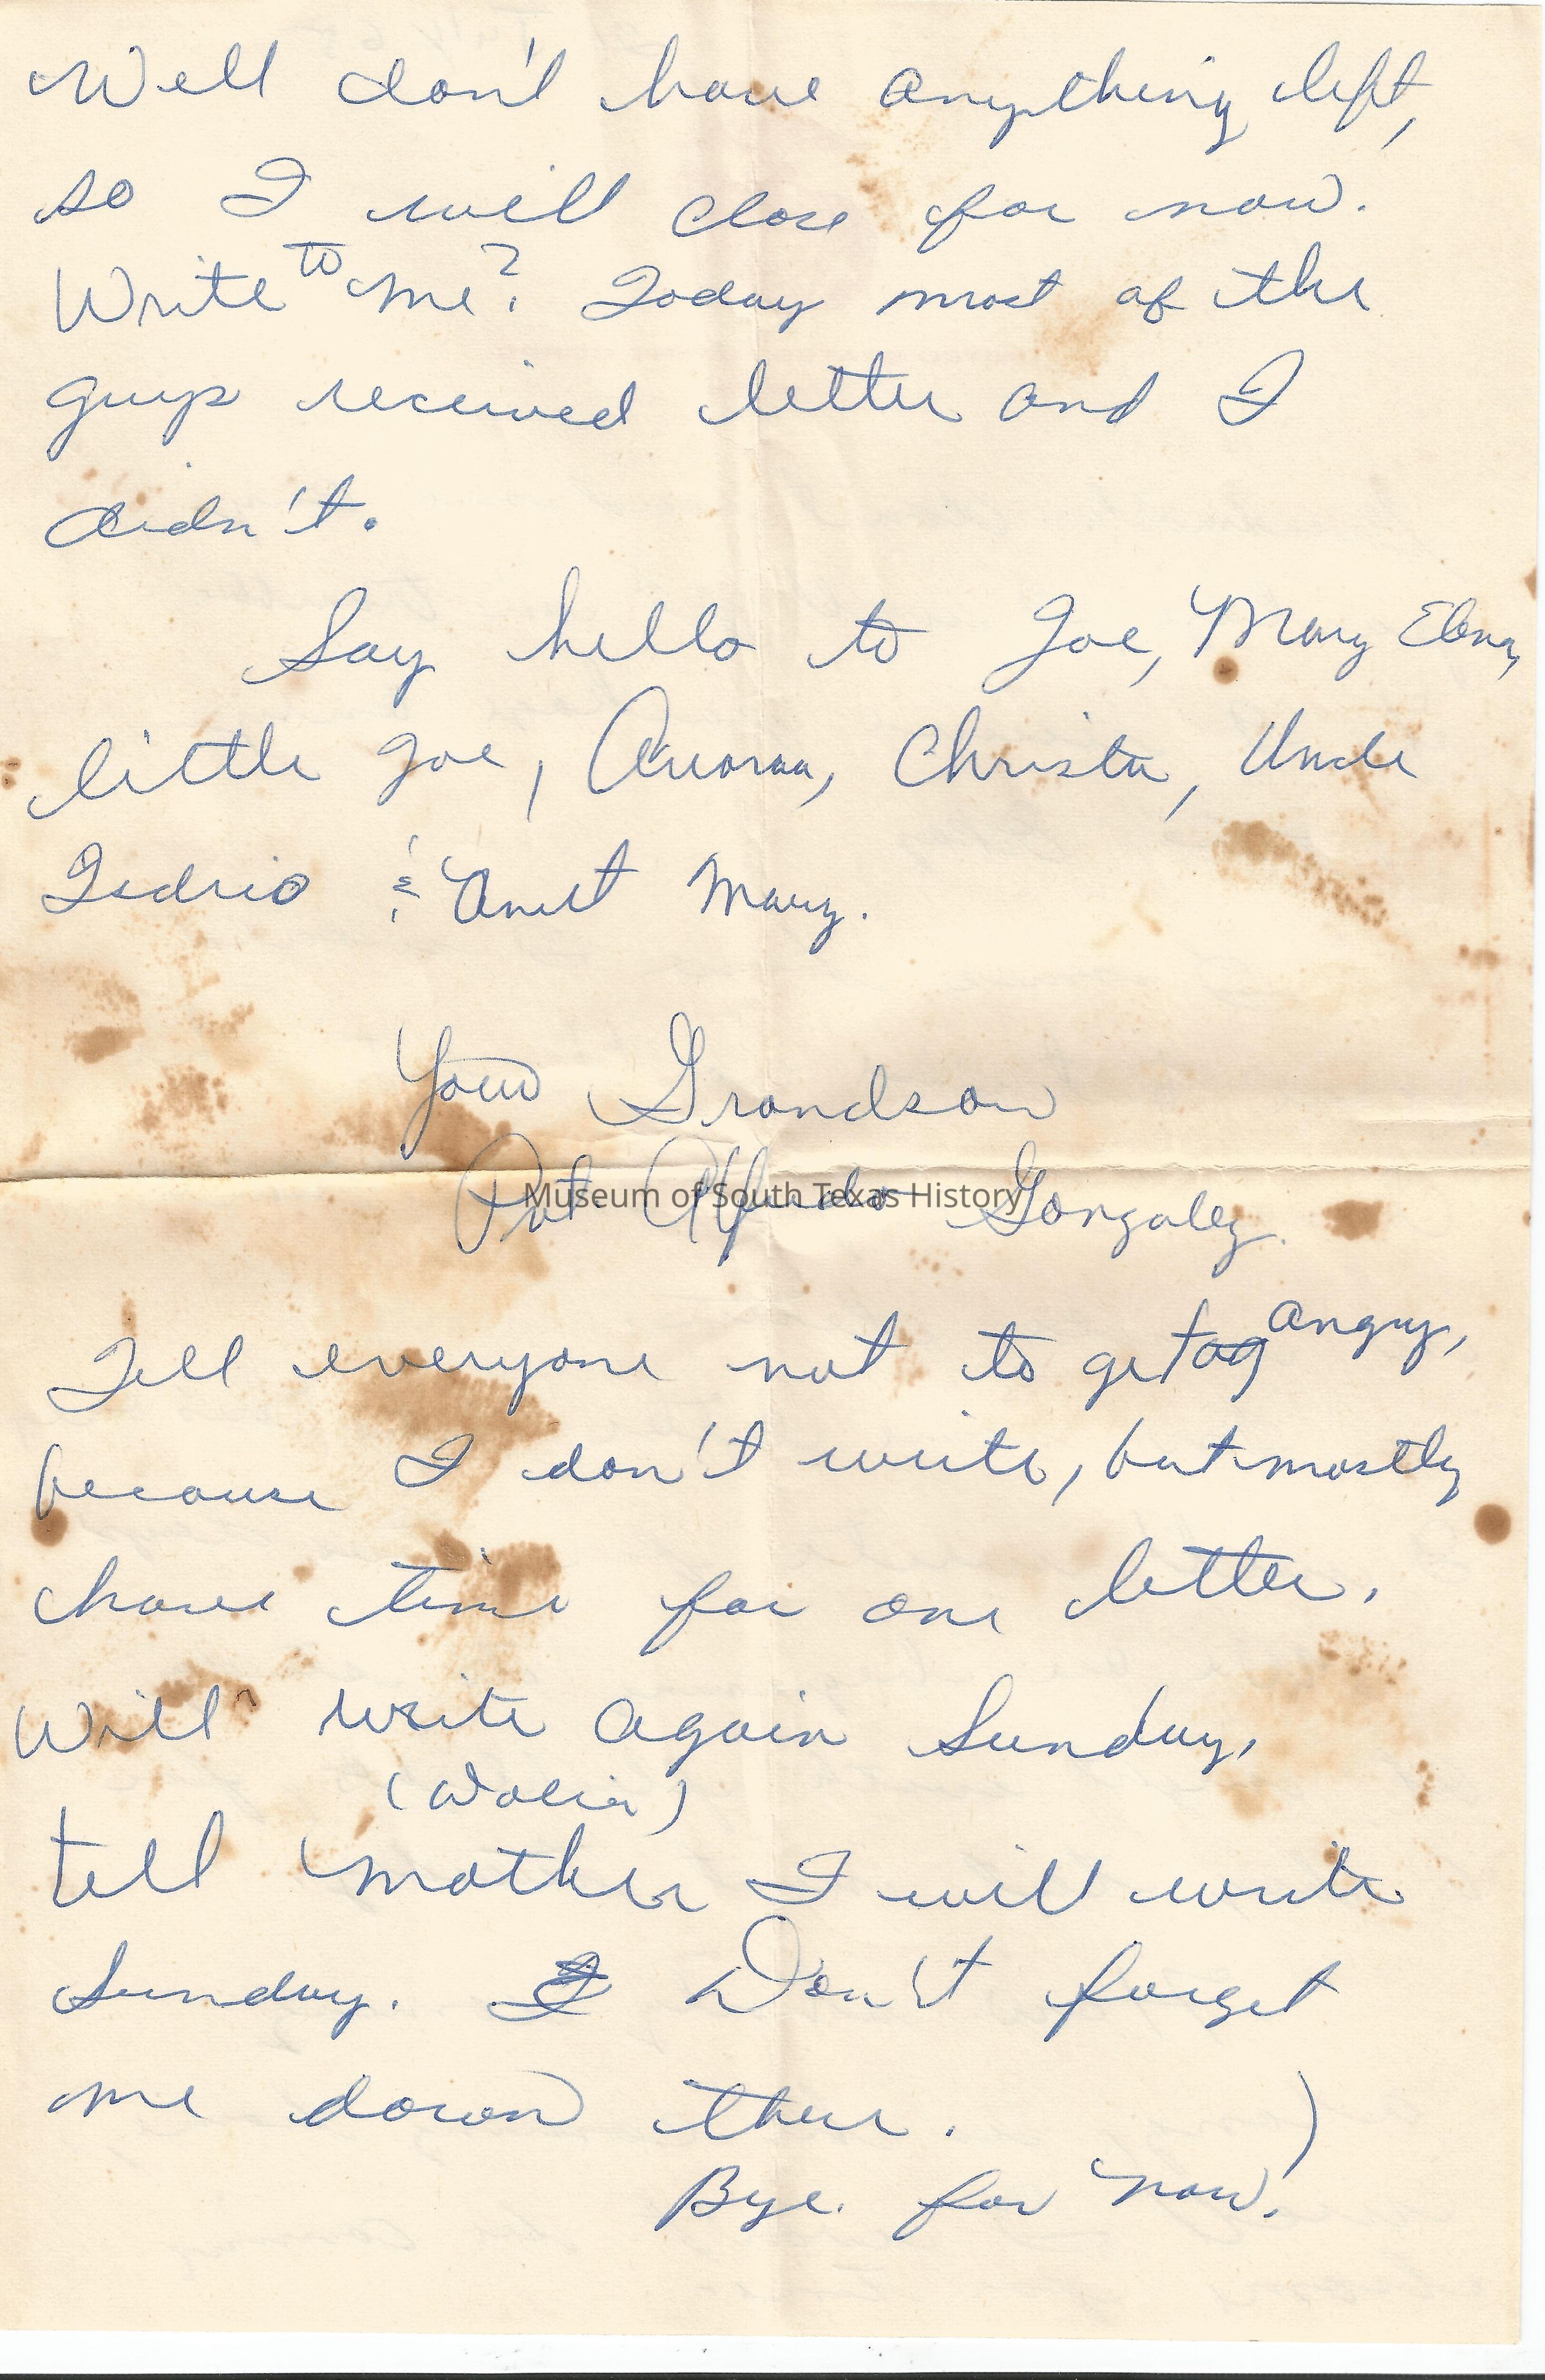 Well don't have anything left,
so I will close for now.
Write to me? Today most of the
guys received letter and I
didn't.
Say hello to Joe, Mary Elena,
little Joe, Auroraa, Christa, Uncle
& Anut Mary.
Your Grandson
Pvt. Alfredo Gonzalez.
Museum of South Texas History
Tell everyone not to get ag angry,
because I don't write, but mostly
have time for one letter.
Will write again Sunday,
tell mother I will write
Sunday. I Don't forget
me down there. )
Bye. for now.